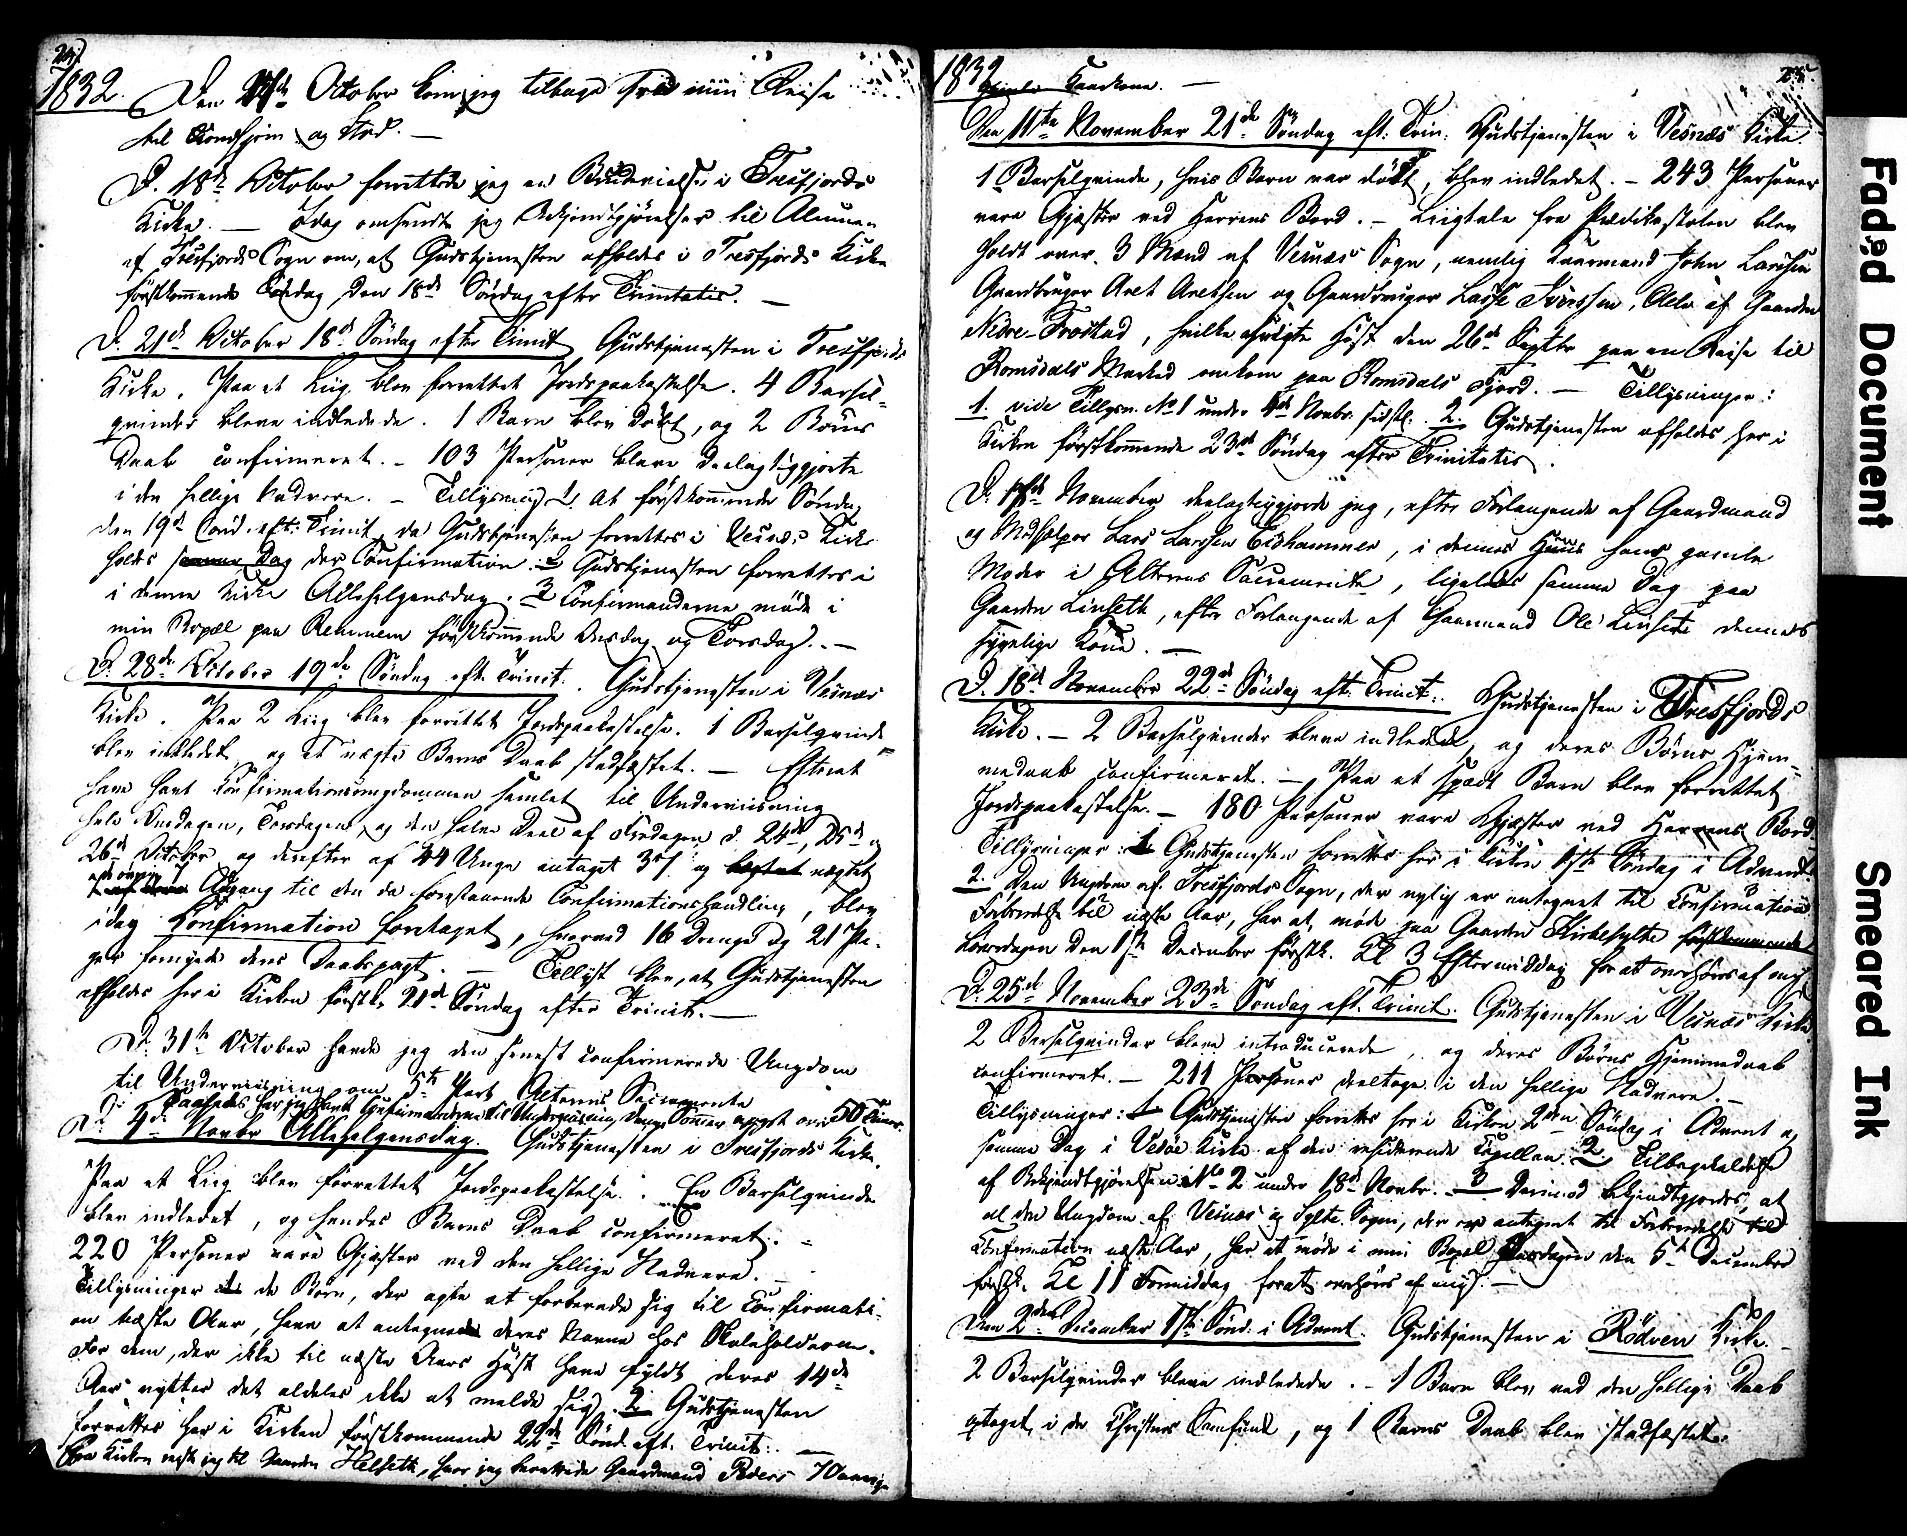 24.
1832.
Den Octobr kom jeg tilbage fra min Reise
til Trondhjem og Sted. —
D. 18de October forrettede jeg en Brudevielse i Tresfjords
Kirke. — Idag omsendt jeg Bekjendtgjörelser til Almuen
af Tresfjords Sogn om, at Gudstjenesten afholdes i Tresfjords Kirke
förstkommende Söndag den 18de Söndag efter Trinitatis. —
D. 21de October 18de Söndag efter Trinit. Gudstjenesten i Tresfjords
Kirke. Paa et Liig blev forrettet Jordspaakastelse. 4 Barsel-
qvinder bleve indledede. 1 Barn blev döbt, og 2 Börns
Daab confirmeret. – 103 Personer bleve deelagtiggjorte
i den hellige Nadvere. – Tillysning 1. At förstkommende Söndag
den 19de Sönd. eft. Trinit., da Gudstjenesten forrettes i Vesnæs Kirke
holdes samme Dag der Confirmation. 2 Gudstjenesten forrettes i
i denne Kirke Allehelgensdag. 3 Confirmanderne möde i
min Bopæl paa Remmem förstkommende Onsdag og Torsdag. –
D. 28de October 19de Söndag eft. Trinit. Gudstjenesten i Vesnæs
Kirke. Paa 2 Liig blev forrettet Jordspaakastelse. 1 Barselqvinde
blev indledet, og et uægte Barns Daab stadfæstet. — Efterat
have havt Confirmationsungdommen samlet til Underviisning
hele Onsdagen, Torsdagen, og den halve Deel af Fredagen d. 24de, 25de og
26de October og derefter af 44 Unge antaget 37 og nægtet
Adgang til den da forestaaende Confirmationshandling, blev
idag Confirmation foretaget, hvorved 16 Drenge og 21 Pi-
ger fornyede deres Daabspagt. — Tillyst blev, at Gudstjenesten
afholdes her i Kirken förstk. 21de Söndag efter Trinit. —
D. 31te October havde jeg den senest confirmerede Ungdom
til Underviisning om 5te Part Alterens Sacramente
havt Confirmanderne til Underviisning denne Sommer 50 Timer.
D. 4de Novbr Allehelgensdag. Gudstjenesten i Tresfjords Kirke.
Paa et Liig blev forrettet Jordspaakastelse. En Barselqvinde
blev indledet, og hendes Barns Daab confirmeret. –
220 Personer vare Gjæster ved den hellige Nadvere. –
Tillysninger 1. de Börn, der agte at forberede sig til Confirmati-
on næste Aar, have at antegne deres Navne hos Skoleholderne.
For dem, der ikke til næste Aars Höst have fyldt deres 14de
Aar nytter det aldeles ikke at melde sig. 2. Gudstjenesten
forrettes her i Kirken förstkommende 22de Sönd. eft. Trinit. —
Fra Kirken reiste jeg til Gaarden Helseth, hvor jeg berettede Gaardmand Peders 70aarige
1832
25.
Kone. —
Den 11te November 21de Söndag eft. Trin. Gudstjenesten i Vesnæs Kirke.
1 Barselqvinde, hvis Barn var dödt, blev indledet. – 243 Personer
vare Gjæster ved Herrens Bord. – Liigtale fra Prædikestolen blev
holdt over 3 Mænd af Vesnæs Sogn, nemlig Kaarmand John Larssen
Gaardbruger Aret Aretsen og Gaardbruger Lasse Iversen, Alle af Gaarden
Nedre-Frostad, hvilke afvigte Höst den 26de Septbr paa en Reise til
Romsdals Marked omkom paa Romsdals Fjord. — Tillysninger:
1. vide Tillysn. No 1 under 4de Novbr. sidstl. 2. Gudstjenesten afholdes her i
Kirken förstkommende 23de Söndag efter Trinitatis.
D. November deelagtiggjorde jeg, efter Forlangende af Gaardmand
og Medhjelper Lars Larssen Eidhammer, i dennes Huus hans gamle
Moder i Alterens Sacramente, ligeledes samme Dag paa
Gaarden Linseth, efter Forlangende af Gaarmand Ole Linseth dennes
sygelige Kone. —
D. 18de November 22de Söndag eft. Trinit. Gudstjenesten i Tresfjords
Kirke. – 2 Barselqvinder bleve indledede, og deres Börns Hjem-
medaab confirmeret. – Paa et spædt Barn blev forrettet
Jordspaakastelse. – 180 Personer vare Gjæster ved Herrens Bord.
Tillysninger: 1 Gudstjenesten forrettes her i Kirken 1ste Söndag i Advent.
2. Den Ungdom af Tresfjords Sogn, der nylig er antegnet til Confirmation
Forberedelse til næste Aar, har at möde paa Gaarden Kirkesylte förstkommende
Löverdagen den 1ste December förstk. Kl 3 Eftermiddag for at overhöres af mig.
D. 25de November 23de Söndag eft. Trinit. Gudstjenesten i Vesnæs Kirke.
2 Barselqvinder bleve introducerede, og deres Börns Hjemmedaab
confirmeret. – 211 Personer deeltoge i den hellige Nadvere. –
Tillysninger: 1 Gudstjenesten forrettes her i Kirken 2den Söndag i Advent og
samme Dag i Vedöe Kirke af den residerende Capellan. 2 Tilbagekaldelse
af Bekjendtgjörelsen No 2 under 18de Novbr. – 3 Derimod bekjendtgjordes, at
al den Ungdom af Vesnæs og Sylte Sogne, der er antegnet til Forberedelse til
Confirmation næste Aar, har at möde i min Bopæl den 5te December
förstk. Kl 11 Formiddag forat overhöres af mig. —
Den 2den December 1ste Sönd. i Advent. Gudstjenesten i Rödven Kirke. –
2 Barselqvinder bleve indledede. – 1 Barn blev ved den hellige Daab
optaget i de Christnes Samfund, og 1 Barns Daab blev stadfæstet.
Faded Document
Smeared Ink